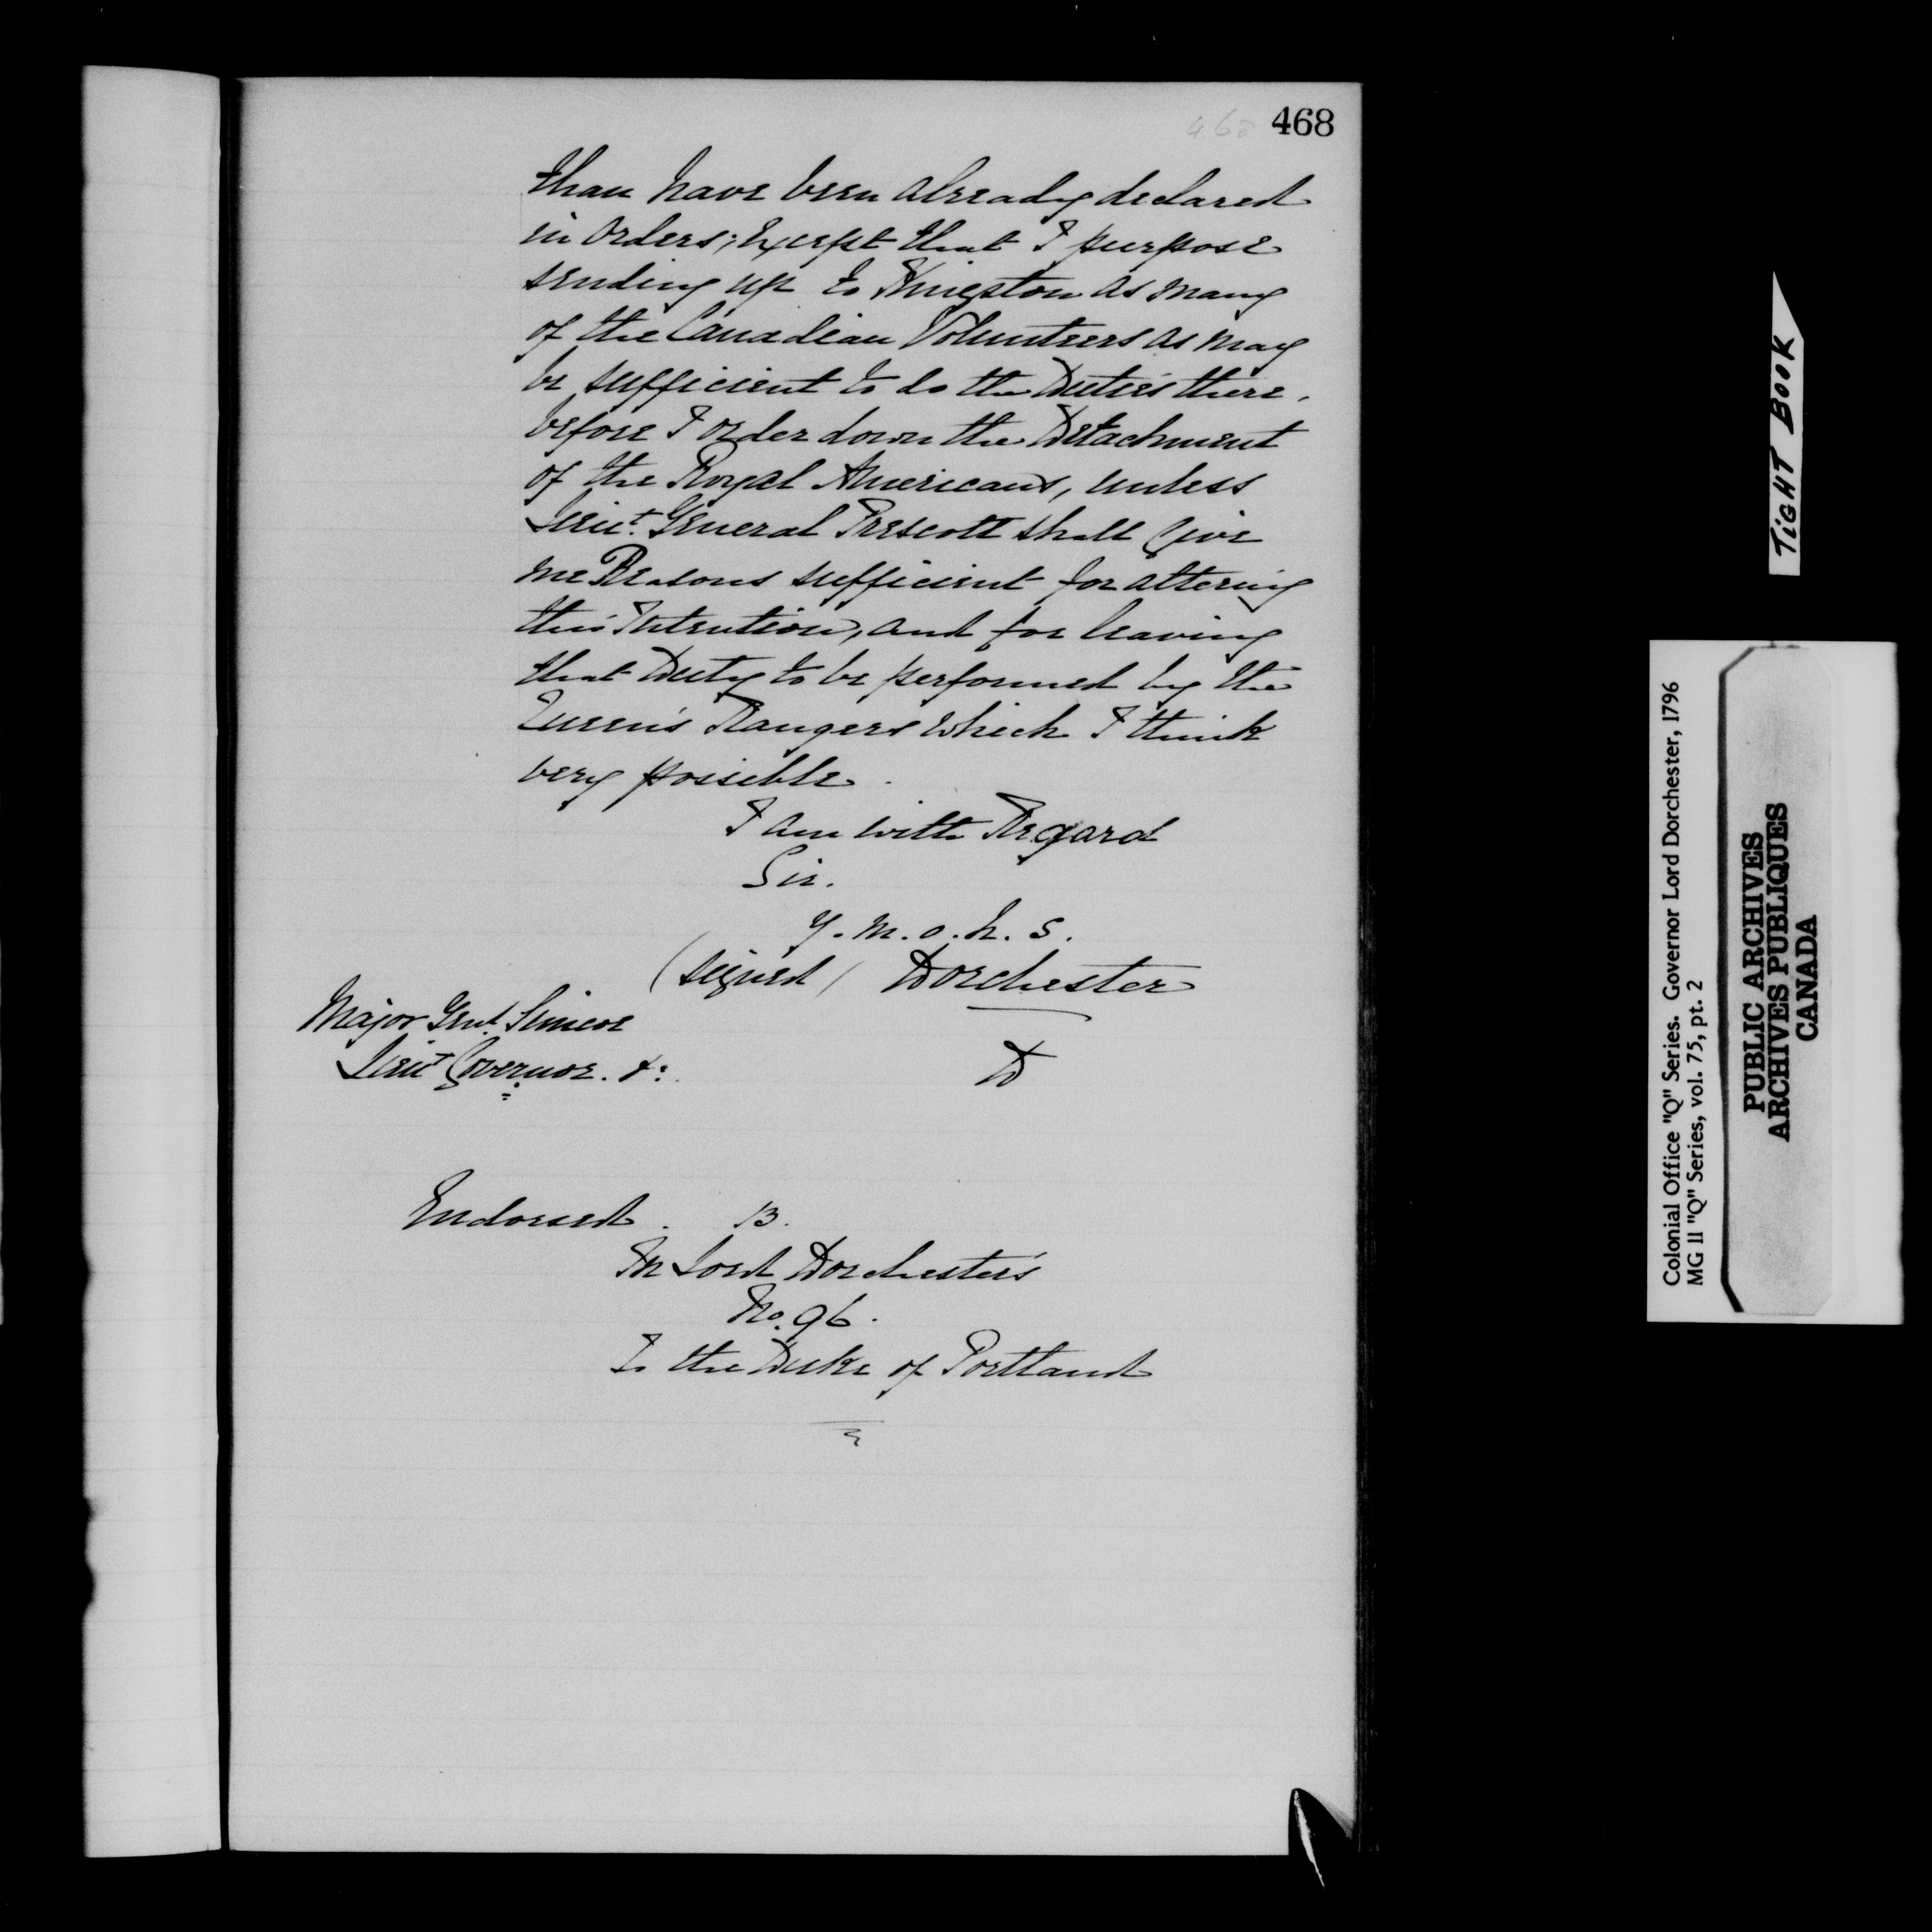 468 468
than have been already declared
in Orders; Except that I purpose
sending up to Kingston as many
of the Canadian Volunteers as may
be sufficient to do the Duties there,
before I order down the Detachment
of the Royal Americans, unless
Lieut. General Prescott shall Give
me Reasons sufficient for altering
this Intention, and for leaving
that Duty to be performed by the
Queen's Rangers which I think
very possible.
I am with Regard
Sir.
Y. m. o. h. s.
(signed) Dorchester
Major Genl. Simcoe
Lieut Governor. &:
D
Endorsed. B.
In Lord Dorchester's
No. 96.
To the Duke of Portland
TIGHT BOOK
Colonial Office "Q" Series. Governor Lord Dorchester, 1796
MG 11 "Q" Series, vol. 75, pt. 2
PUBLIC ARCHIVES
ARCHIVES PUBLIQUES
CANADA